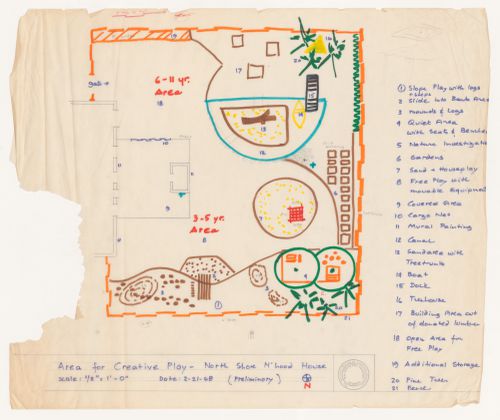 6-11 yr.
Area
18
17
gate
19
15
14
13
12
16
20
11
10
9
3-5 yr.
Area
8
1
21
① Slope Play with logs
+ steps
2 Slide into Boat Area
3 mounds & Logs
4 Quiet Area
with Seat & Benches
5 Nature Investigation
6 Gardens
7 Sand + Houseplay
8 Free Play with
movable Equipment
9 Covered Area
10 Cargo Net
11 Mural Painting
12 Canal
13 Sandarea with
Treetrunks
14 Boat
15 Dock
16 Treehouse
17 Building Area out
of donated Lumber
18 Open Area for
Free Play
19 Additional Storage
20 Pine Trees
21 Fence
Area for Creative Play - North Shore N'hood House
Scale: 1/8" = 1'-0" Date: 2-21-68 (Preliminary) N